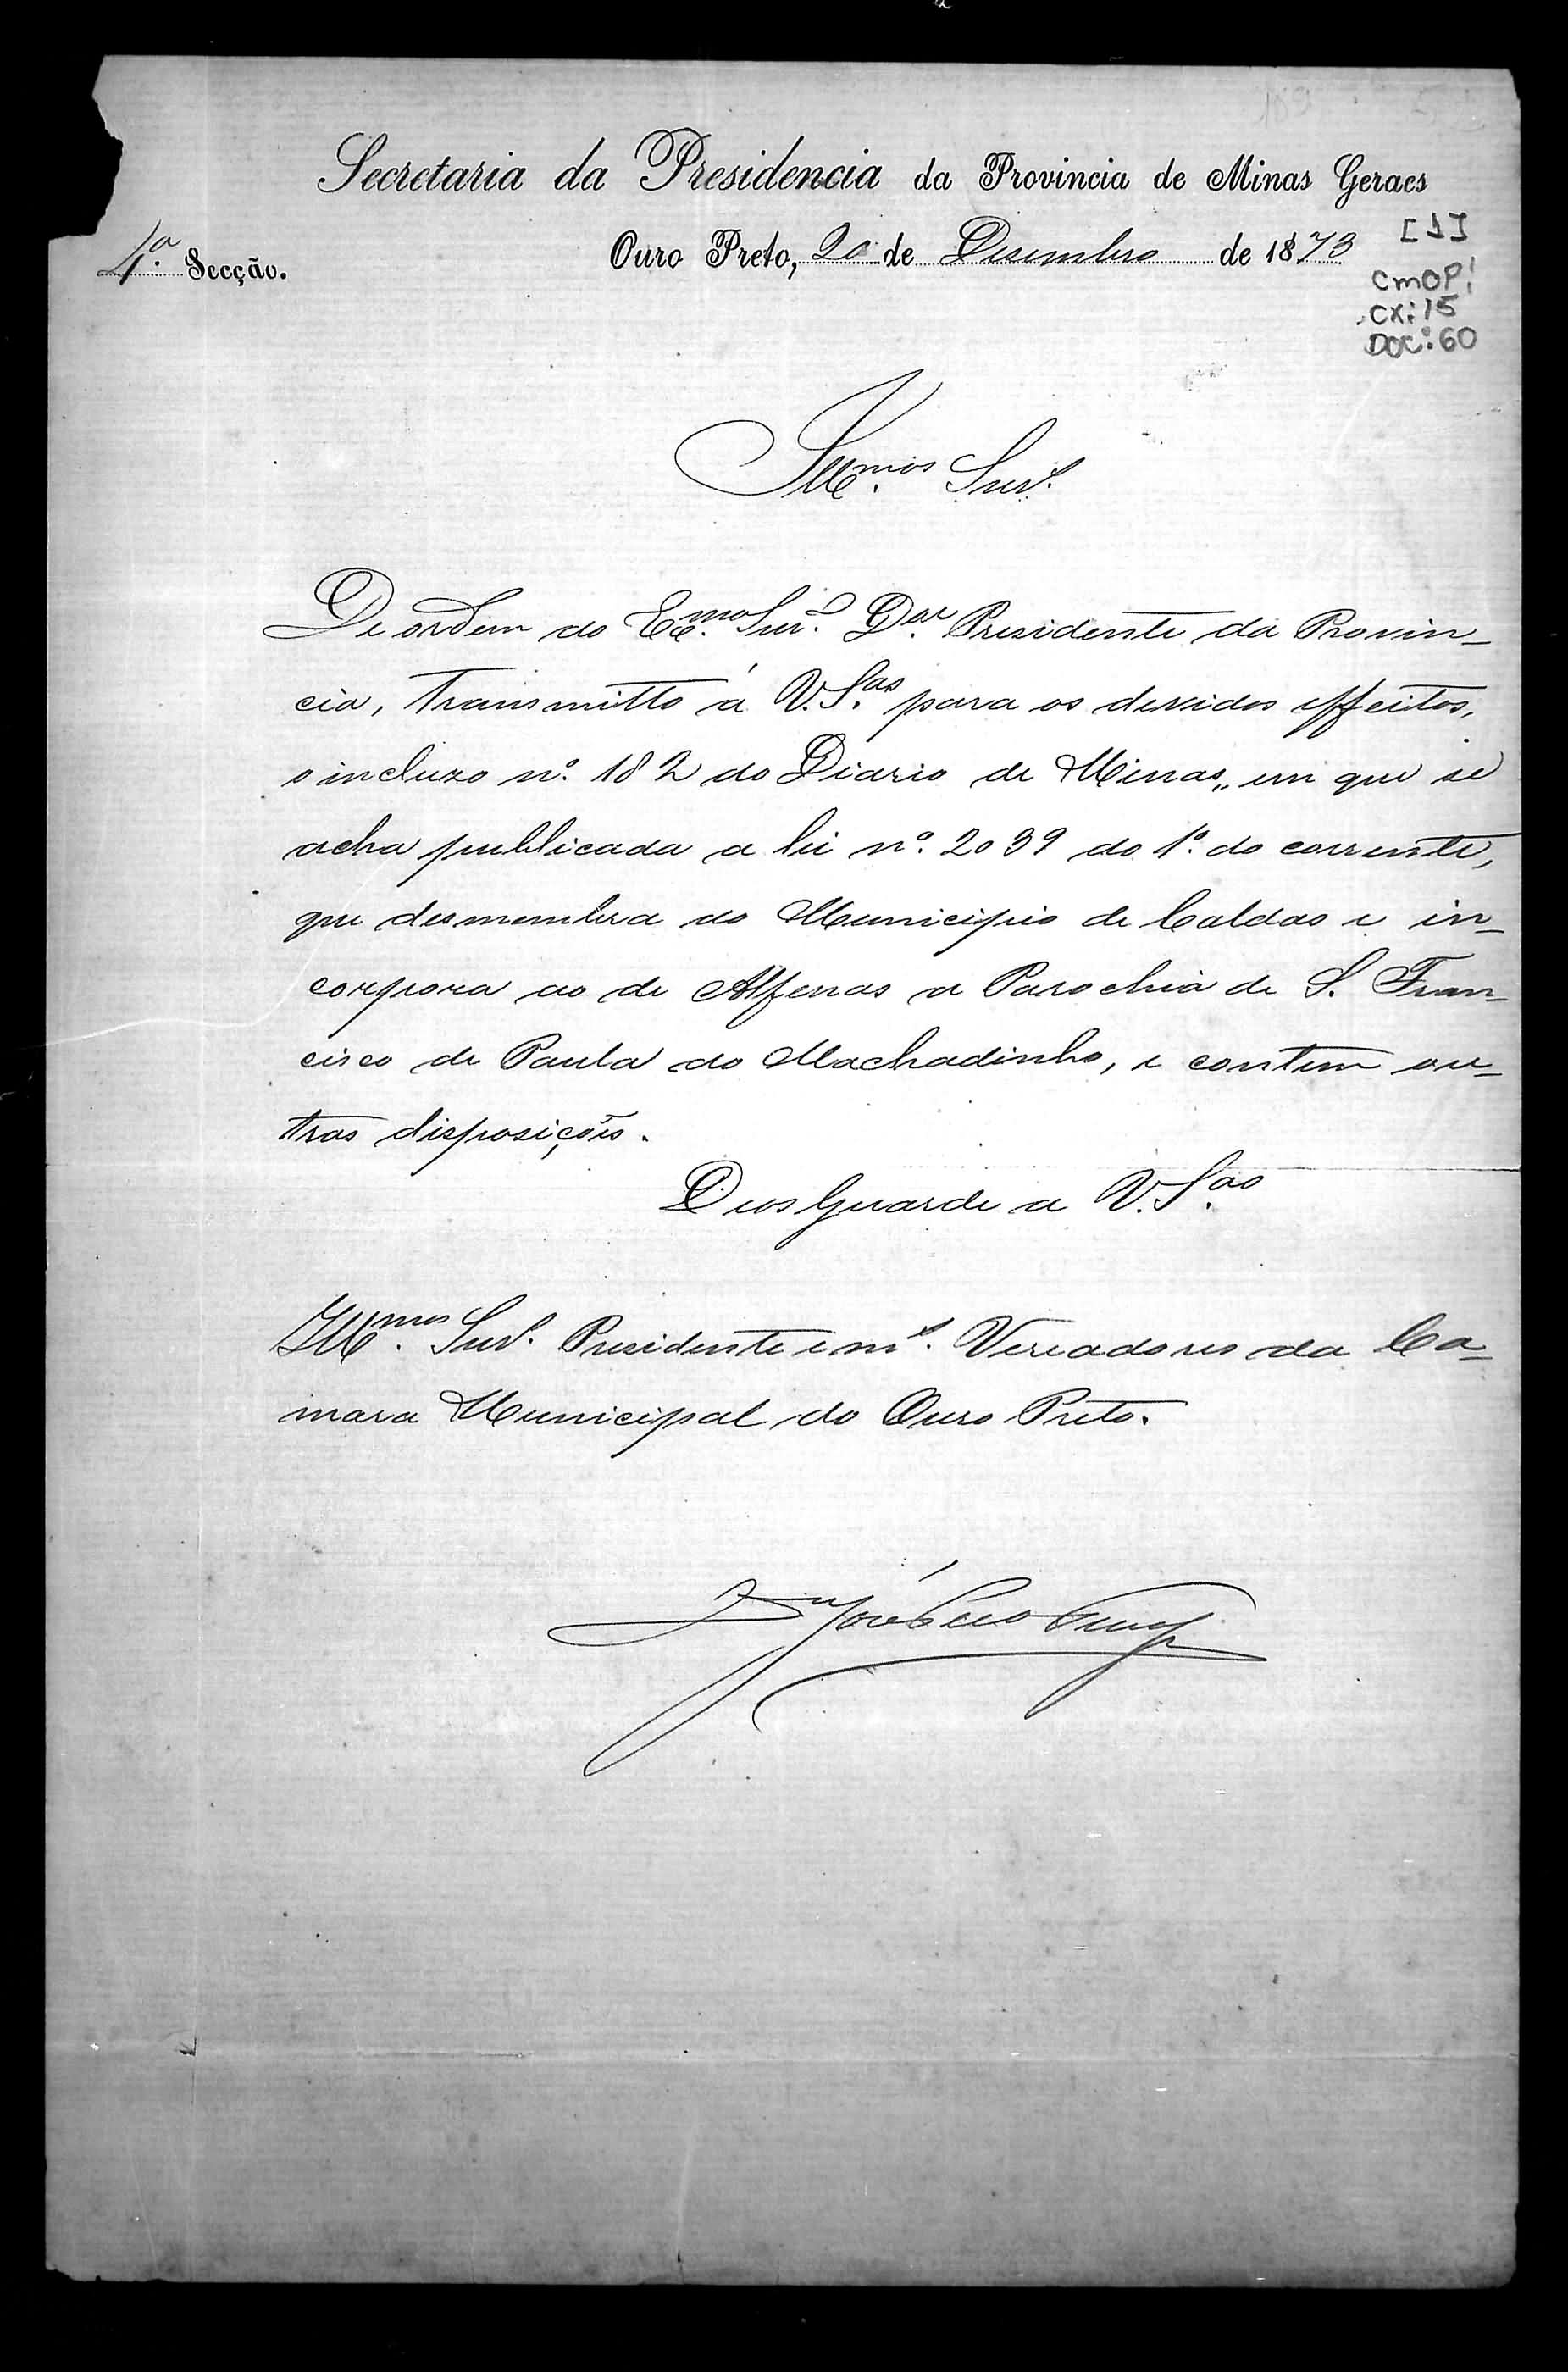 Secretaria da Presidencia da Provincia de Minas Geraes
4ª Secção.
Ouro Preto, 20 de Desembro de 1873
[1]
CMOP
CX: 15
DOC: 60
Illmos. Snrs.
De ordem do Exmo. Snr. Dor. Presidente da Provin-
cia, transmitto á V. Sas. para os devidos effeitos,
o incluzo nº. 182 do Diario de Minas,, em que se
acha publicada a lei nº. 2039 do 1º. do corrente,
que desmembra do Municipio de Caldas e in-
corpora ao de Alfenas a Parochia de S. Fran-
cisco de Paula do Machadinho, e contem ou-
tras disposições.
Deos Guarde a V. Sas.
Illmos. Snrs. Presidente e ms. Vereadores da Ca-
mara Municipal do Ouro Preto.
José